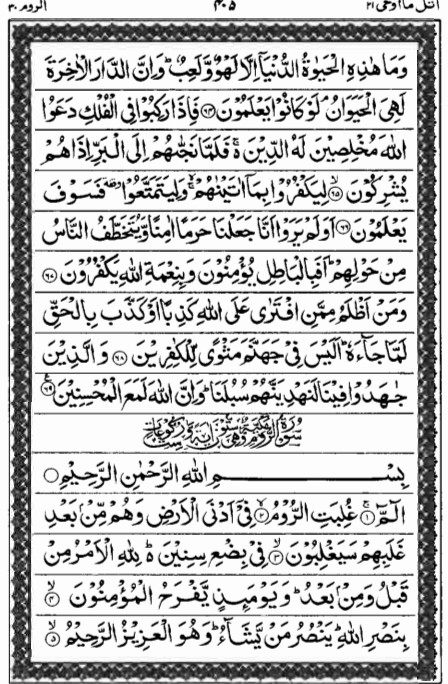 اتل ما اوحی ۲۱ ۴۰۵ الروم ۳۰
وَمَا هٰذِهِ الْحَيٰوةُ الدُّنْيَاۤ اِلَّا لَهْوٌ وَّلَعِبٌ ؕ وَاِنَّ الدَّارَ الْاٰخِرَةَ
لَهِیَ الْحَيَوَانُ ۘ لَوْ كَانُوْا يَعْلَمُوْنَ ﴿۶۴﴾ فَاِذَا رَكِبُوْا فِی الْفُلْكِ دَعَوُا
اللّٰهَ مُخْلِصِيْنَ لَهُ الدِّيْنَ ۚ۬ فَلَمَّا نَجّٰىهُمْ اِلَی الْبَرِّ اِذَا هُمْ
يُشْرِكُوْنَ ﴿ۙ۶۵﴾ لِيَكْفُرُوْا بِمَاۤ اٰتَيْنٰهُمْ ۚۙ وَلِيَتَمَتَّعُوْا ٝ فَسَوْفَ
يَعْلَمُوْنَ ﴿۶۶﴾ اَوَلَمْ يَرَوْا اَنَّا جَعَلْنَا حَرَمًا اٰمِنًا وَّيُتَخَطَّفُ النَّاسُ
مِنْ حَوْلِهِمْ ؕ اَفَبِالْبَاطِلِ يُؤْمِنُوْنَ وَبِنِعْمَةِ اللّٰهِ يَكْفُرُوْنَ ﴿۶۷﴾
وَمَنْ اَظْلَمُ مِمَّنِ افْتَرٰی عَلَی اللّٰهِ كَذِبًا اَوْ كَذَّبَ بِالْحَقِّ
لَمَّا جَآءَهٗ ؕ اَلَيْسَ فِیْ جَهَنَّمَ مَثْوًی لِّلْكٰفِرِيْنَ ﴿۶۸﴾ وَالَّذِيْنَ
جٰهَدُوْا فِيْنَا لَنَهْدِيَنَّهُمْ سُبُلَنَا ؕ وَاِنَّ اللّٰهَ لَمَعَ الْمُحْسِنِيْنَ ﴿۶۹﴾
سُوْرَةُ الرُّوْمِ مَكِّيَّةٌ وَّهِیَ سِتُّوْنَ اٰيَةً وَّسِتُّ رُكُوْعَاتٍ
بِسْمِ اللّٰهِ الرَّحْمٰنِ الرَّحِيْمِ
الٓمّٓ ﴿ۚ۱﴾ غُلِبَتِ الرُّوْمُ ﴿ۙ۲﴾ فِیْۤ اَدْنَی الْاَرْضِ وَهُمْ مِّنْۢ بَعْدِ
غَلَبِهِمْ سَيَغْلِبُوْنَ ﴿ۙ۳﴾ فِیْ بِضْعِ سِنِيْنَ ؕ۬ لِلّٰهِ الْاَمْرُ مِنْ
قَبْلُ وَمِنْۢ بَعْدُ ؕ وَيَوْمَئِذٍ يَّفْرَحُ الْمُؤْمِنُوْنَ ﴿ۙ۴﴾
بِنَصْرِ اللّٰهِ ؕ يَنْصُرُ مَنْ يَّشَآءُ ؕ وَهُوَ الْعَزِيْزُ الرَّحِيْمُ ﴿ۙ۵﴾